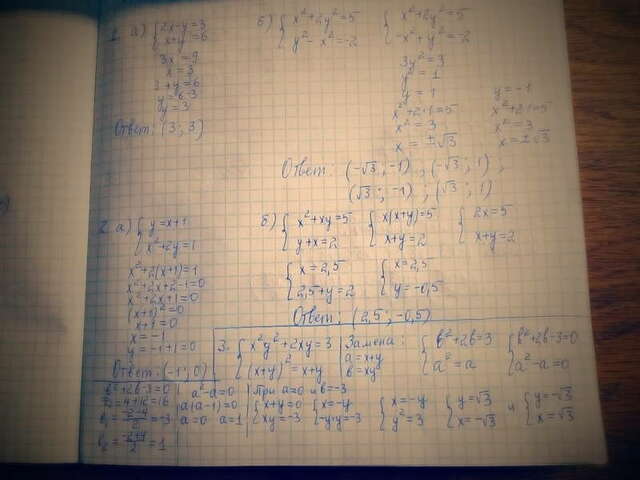 1. а) {2x-y=3
{x+y=6
3x=9
x=3
3+y=6
y=6-3
y=3
Ответ: (3; 3)
б) {x²+2y²=5
{y²-x²=-2
{x²+2y²=5
{-x²+y²=-2
3y²=3
y²=1
y=1
x²+2·1=5
x²=3
x=±√3
y=-1
x²+2·1=5
x²=3
x=±√3
Ответ: (-√3; -1); (-√3; 1);
(√3; -1); (√3; 1)
2. а) {y=x+1
{x²+2y=1
x²+2(x+1)=1
x²+2x+2-1=0
x²+2x+1=0
(x+1)²=0
x+1=0
x=-1
y=-1+1=0
Ответ: (-1; 0)
б) {x²+xy=5
{y+x=2
{x(x+y)=5
{x+y=2
{2x=5
{x+y=2
{x=2,5
{2,5+y=2
{x=2,5
{y=-0,5
Ответ: (2,5; -0,5)
3. {x²y²+2xy=3
{(x+y)²=x+y
Замена:
a=x+y
в=xy
{в²+2в=3
{a²=a
{в²+2в-3=0
{a²-a=0
в²+2в-3=0
D=4+12=16
в₁=(-2-4)/2=-3
в₂=(-2+4)/2=1
a²-a=0
a(a-1)=0
a=0 a=1
При a=0 и в=-3
{x+y=0
{xy=-3
{x=-y
{-y·y=-3
{x=-y
{y²=3
{y=√3
{x=-√3
и {y=-√3
{x=√3